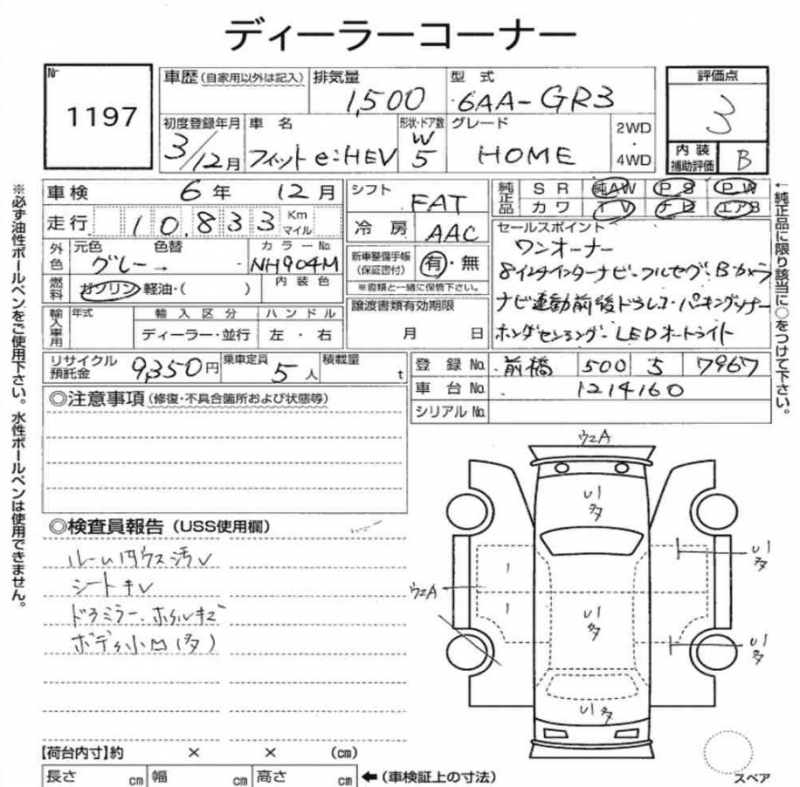 ディーラーコーナー
Nr
1197
車歴 (自家用以外は記入)
排気量
1,500
型式
6AA-GR3
評価点
3
初度登録年月
3/12月
車名
フィット e:HEV
形状・ドア数
W
5
グレード
HOME
2WD
4WD
内装
補助評価
B
車検
6年 12月
シフト
FAT
純正品
SR
純AW
PS
PW
カワ
TV
ナビ
エアB
走行
10,833
Km
マイル
冷房
AAC
セールスポイント
ワンオーナー
8インチインターナビ・フルセグ・Bカメラ
ナビ連動前後ドラレコ・パーキングソナー
ホンダセンシング・LEDオートライト
外色
元色
グレー→
色替
カラーNo.
NH904M
新車整備手帳
(保証書付)
有・無
※書類と一緒に保管下さい。
燃料
ガソリン・軽油・( )
内装色
譲渡書類有効期限
月 日
輸入車用
年式
輸入区分
ハンドル
ディーラー・並行
左・右
リサイクル
預託金
9,350円
乗車定員
5人
積載量
t
登録No.
前橋
500
5
7967
車台No.
1214160
シリアルNo.
◎注意事項 (修復・不具合箇所および状態等)
◎検査員報告 (USS使用欄)
ルーム内ウス汚レ
シートキレ
ドアミラー・ホイルキズ
ボディ小凹(多)
ウ2A
ウ2A
【荷台内寸】約 × × (cm)
長さ cm 幅 cm 高さ cm ←(車検証上の寸法)
スペア
※必ず油性ボールペンをご使用下さい。水性ボールペンは使用できません。
←純正品に限り該当に○をつけて下さい。